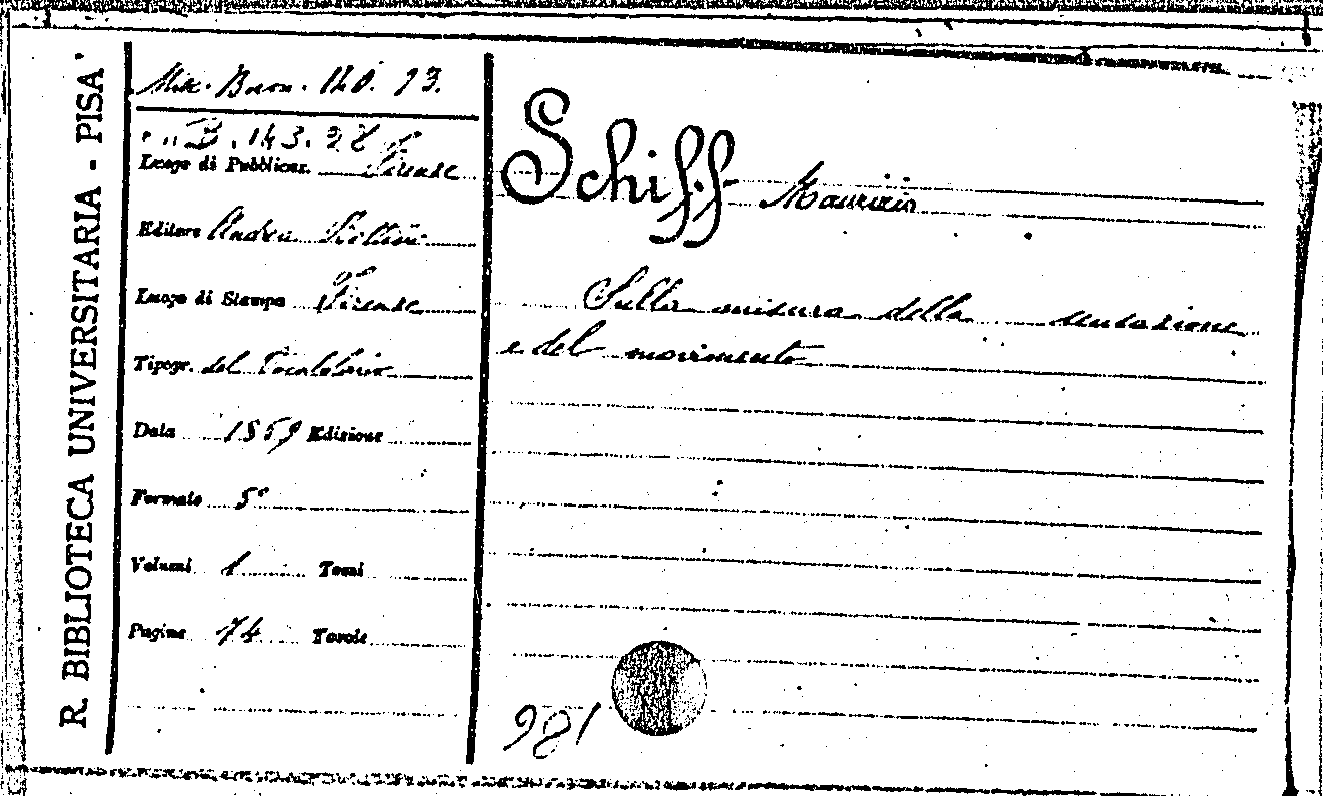 R. BIBLIOTECA UNIVERSITARIA - PISA
Misc. 140. 13.
B. 143. 28
Luogo di Pubblicaz. Firenze
Editore Andrea
Luogo di Stampa Firenze
Tipogr. del
Data 1869 Edizione
Formato 8°
Volumi 1 Tomi
Pagine 74 Tavole
Schiff Maurizio
Sulla misura della sensazione
e del movimento
981